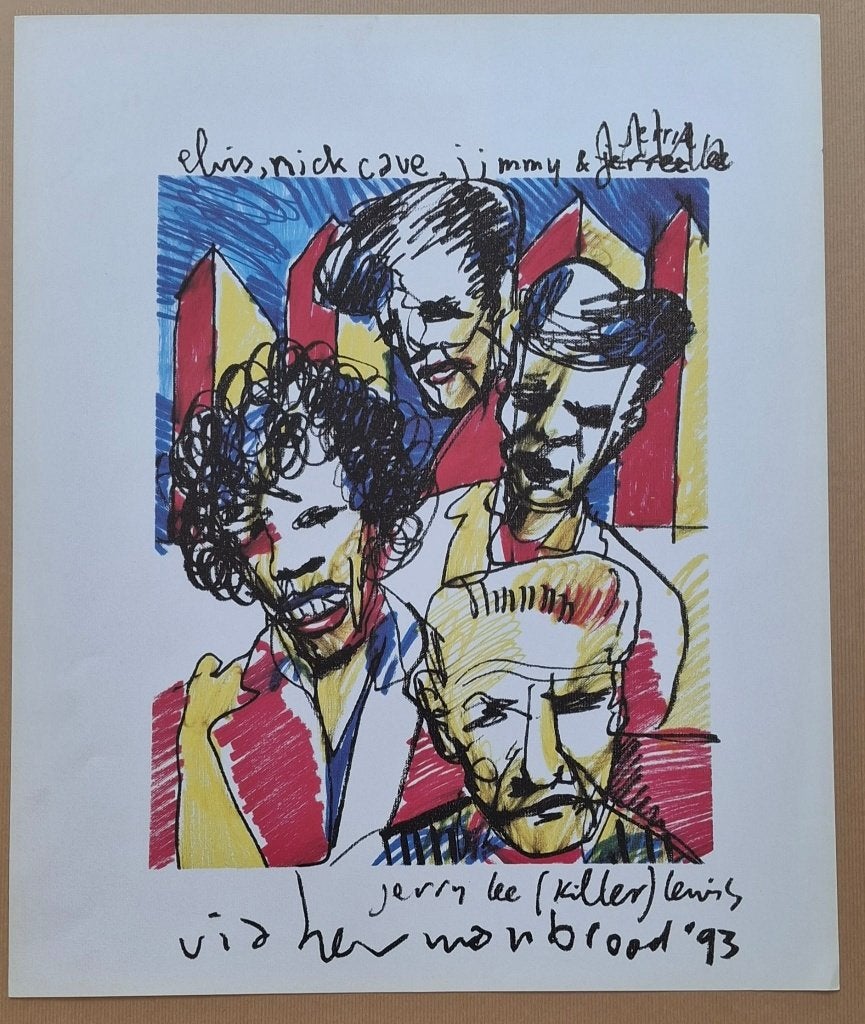 elvis, nick cave, jimmy &
jerry lee (killer) lewis
via herman brood '93